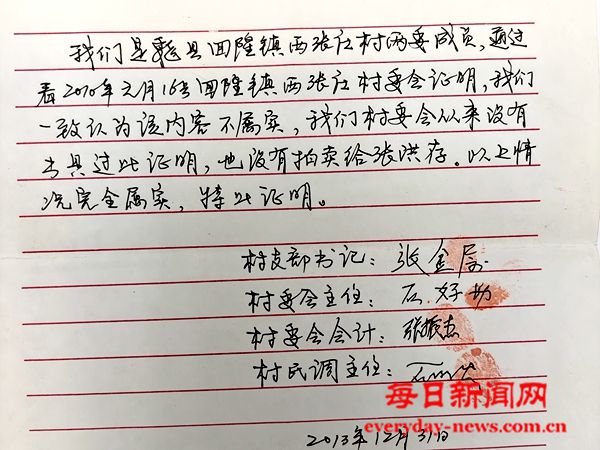 我们是魏县回隆镇西张庄村两委成员，通过
看2010年元月16号回隆镇西张庄村委会证明，我们
一致认为该内容不属实，我们村委会从来没有
出具过此证明，也没有拍卖给张洪存。以上情
况完全属实，特此证明。
村支部书记：张金
村委会主任：石好
村委会会计：张振杰
村民调主任：
每日新闻网
everyday-news.com.cn
2013年12月31日